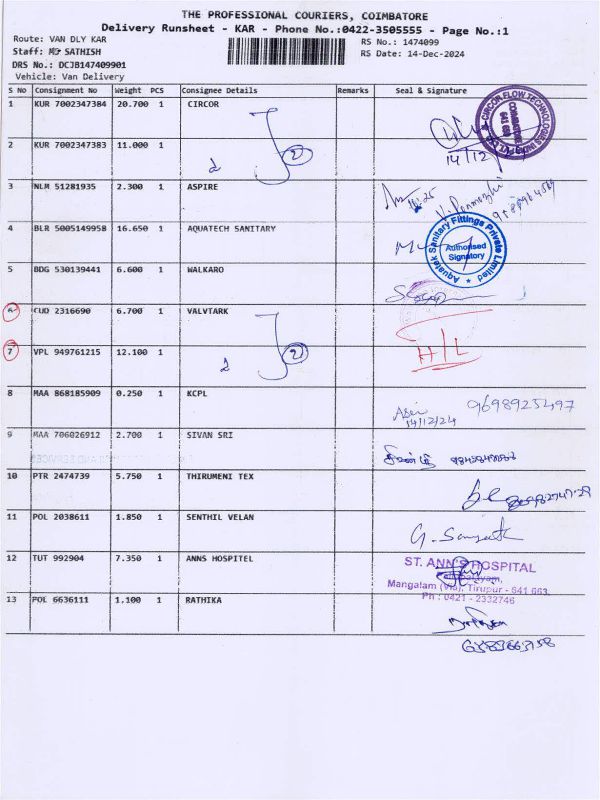 THE PROFESSIONAL COURIERS, COIMBATORE
Delivery Runsheet - KAR - Phone No.:0422-3505555 - Page No.:1
Route: VAN DLY KAR
RS No.: 1474099
Staff: Mr SATHISH
RS Date: 14-Dec-2024
DRS No.: DCJB147409901
Vehicle: Van Delivery
S No Consignment No Weight PCS Consignee Details Remarks Seal & Signature
1 KUR 7002347384 20.700 1 CIRCOR
CIRCOR FLOW TECHNOLOGIES
COIMBATORE
14/12
2 KUR 7002347383 11.000 1
2
3 NLM 51281935 2.300 1 ASPIRE
4 BLR 5005149958 16.650 1 AQUATECH SANITARY
Aquatek Sanitary Fittings Private Limited
Authorised
Signatory
5 BDG 530139441 6.600 1 WALKARO
6 CUD 2316690 6.700 1 VALVTARK
7 VPL 949761215 12.100 1
2
H/L
8 MAA 868185909 0.250 1 KCPL
9698925497
14/12/24
9 MAA 706026912 2.700 1 SIVAN SRI
10 PTR 2474739 5.750 1 THIRUMENI TEX
11 POL 2038611 1.850 1 SENTHIL VELAN
12 TUT 992904 7.350 1 ANNS HOSPITEL
ST. ANN'S HOSPITAL
Mangalam (Via), Tirupur - 641 663.
Ph : 0421 - 2332746
13 POL 6636111 1.100 1 RATHIKA